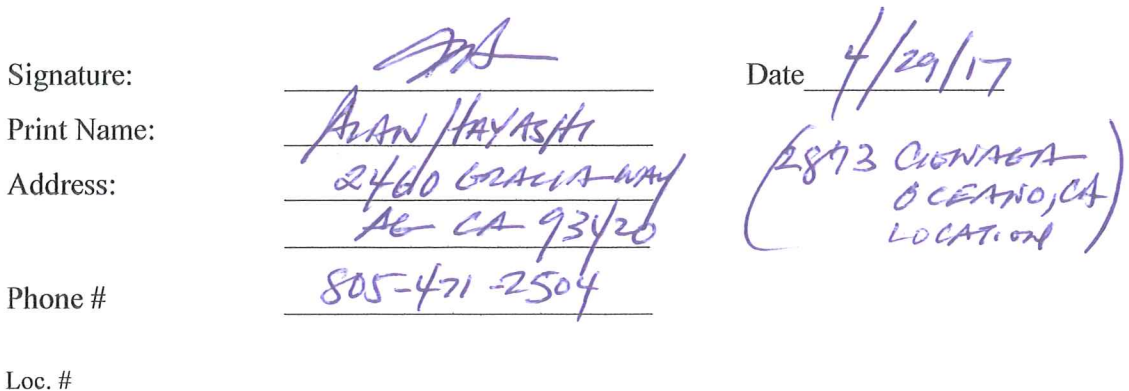 Signature: Date 4/29/17
Print Name: ALAN HAYASHI
Address: 2460 GRACIA WAY
AG CA 93420
(2873 CIENAGA
OCEANO, CA
LOCATION)
Phone # 805-471-2504
Loc. #